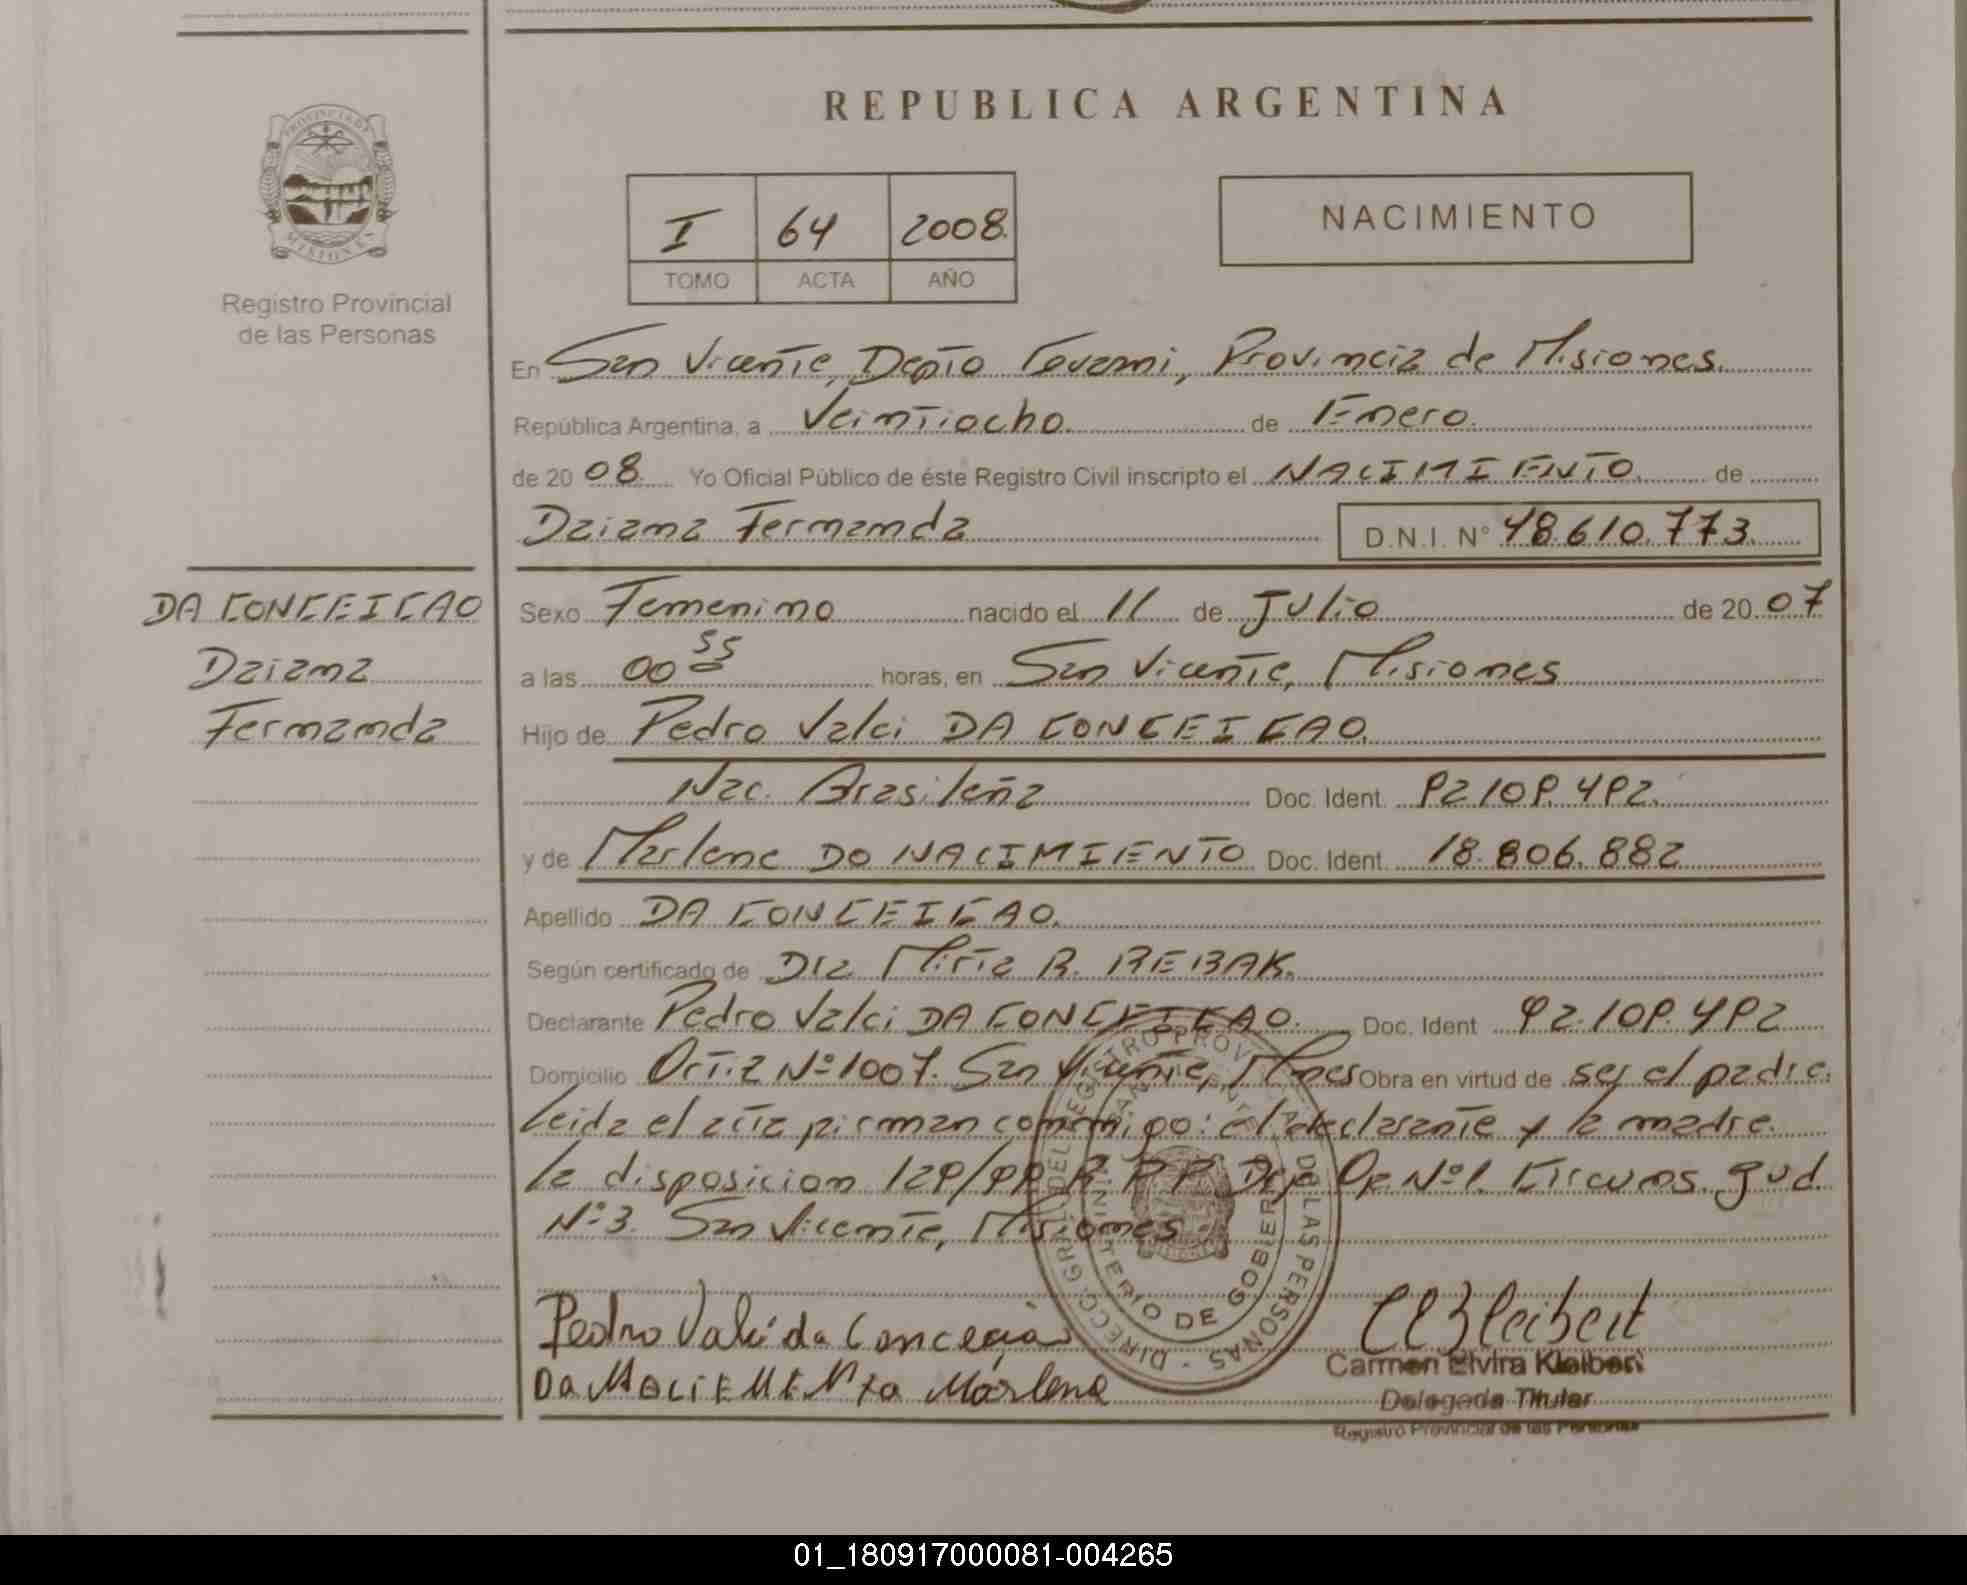 PROVINCIA DE
MISIONES
Registro Provincial
de las Personas
REPUBLICA ARGENTINA
I 64 2008
TOMO ACTA AÑO
NACIMIENTO
En San Vicente, Depto Guarani, Provincia de Misiones
República Argentina, a Veintiocho de Enero
de 20 08 Yo Oficial Público de éste Registro Civil inscripto el NACIMIENTO de
Daiana Fernanda D.N.I. Nº 48.610.773
DA CONCEICAO
Daiana
Fernanda
Sexo Femenino nacido el 11 de Julio de 20 07
a las 00 55 horas, en San Vicente, Misiones
Hijo de Pedro Valci DA CONCEICAO
Nac. Brasileña Doc. Ident. 92109.492
y de Marlene DO NACIMIENTO Doc. Ident. 18.806.882
Apellido DA CONCEICAO
Según certificado de Dra Mirta R. REBAK
Declarante Pedro Valci DA CONCEICAO. Doc. Ident 92.109.492
Domicilio Nº 1007. San Vicente, Mnes Obra en virtud de ser el padre.
Leida el acta firman conmigo: el declarante y la madre.
la disposicion 129/99 R.P.P. Nº1. Circuns. Jud.
Nº3. San Vicente, Misiones
Pedro Valci da Conceição
Marlene
Carmen Elvira Kleibert
Delegada Titular
Registro Provincial de las Personas
DIRECC. GRAL. DEL REGISTRO PROVINCIAL DE LAS PERSONAS
MINISTERIO DE GOBIERNO
01_180917000081-004265